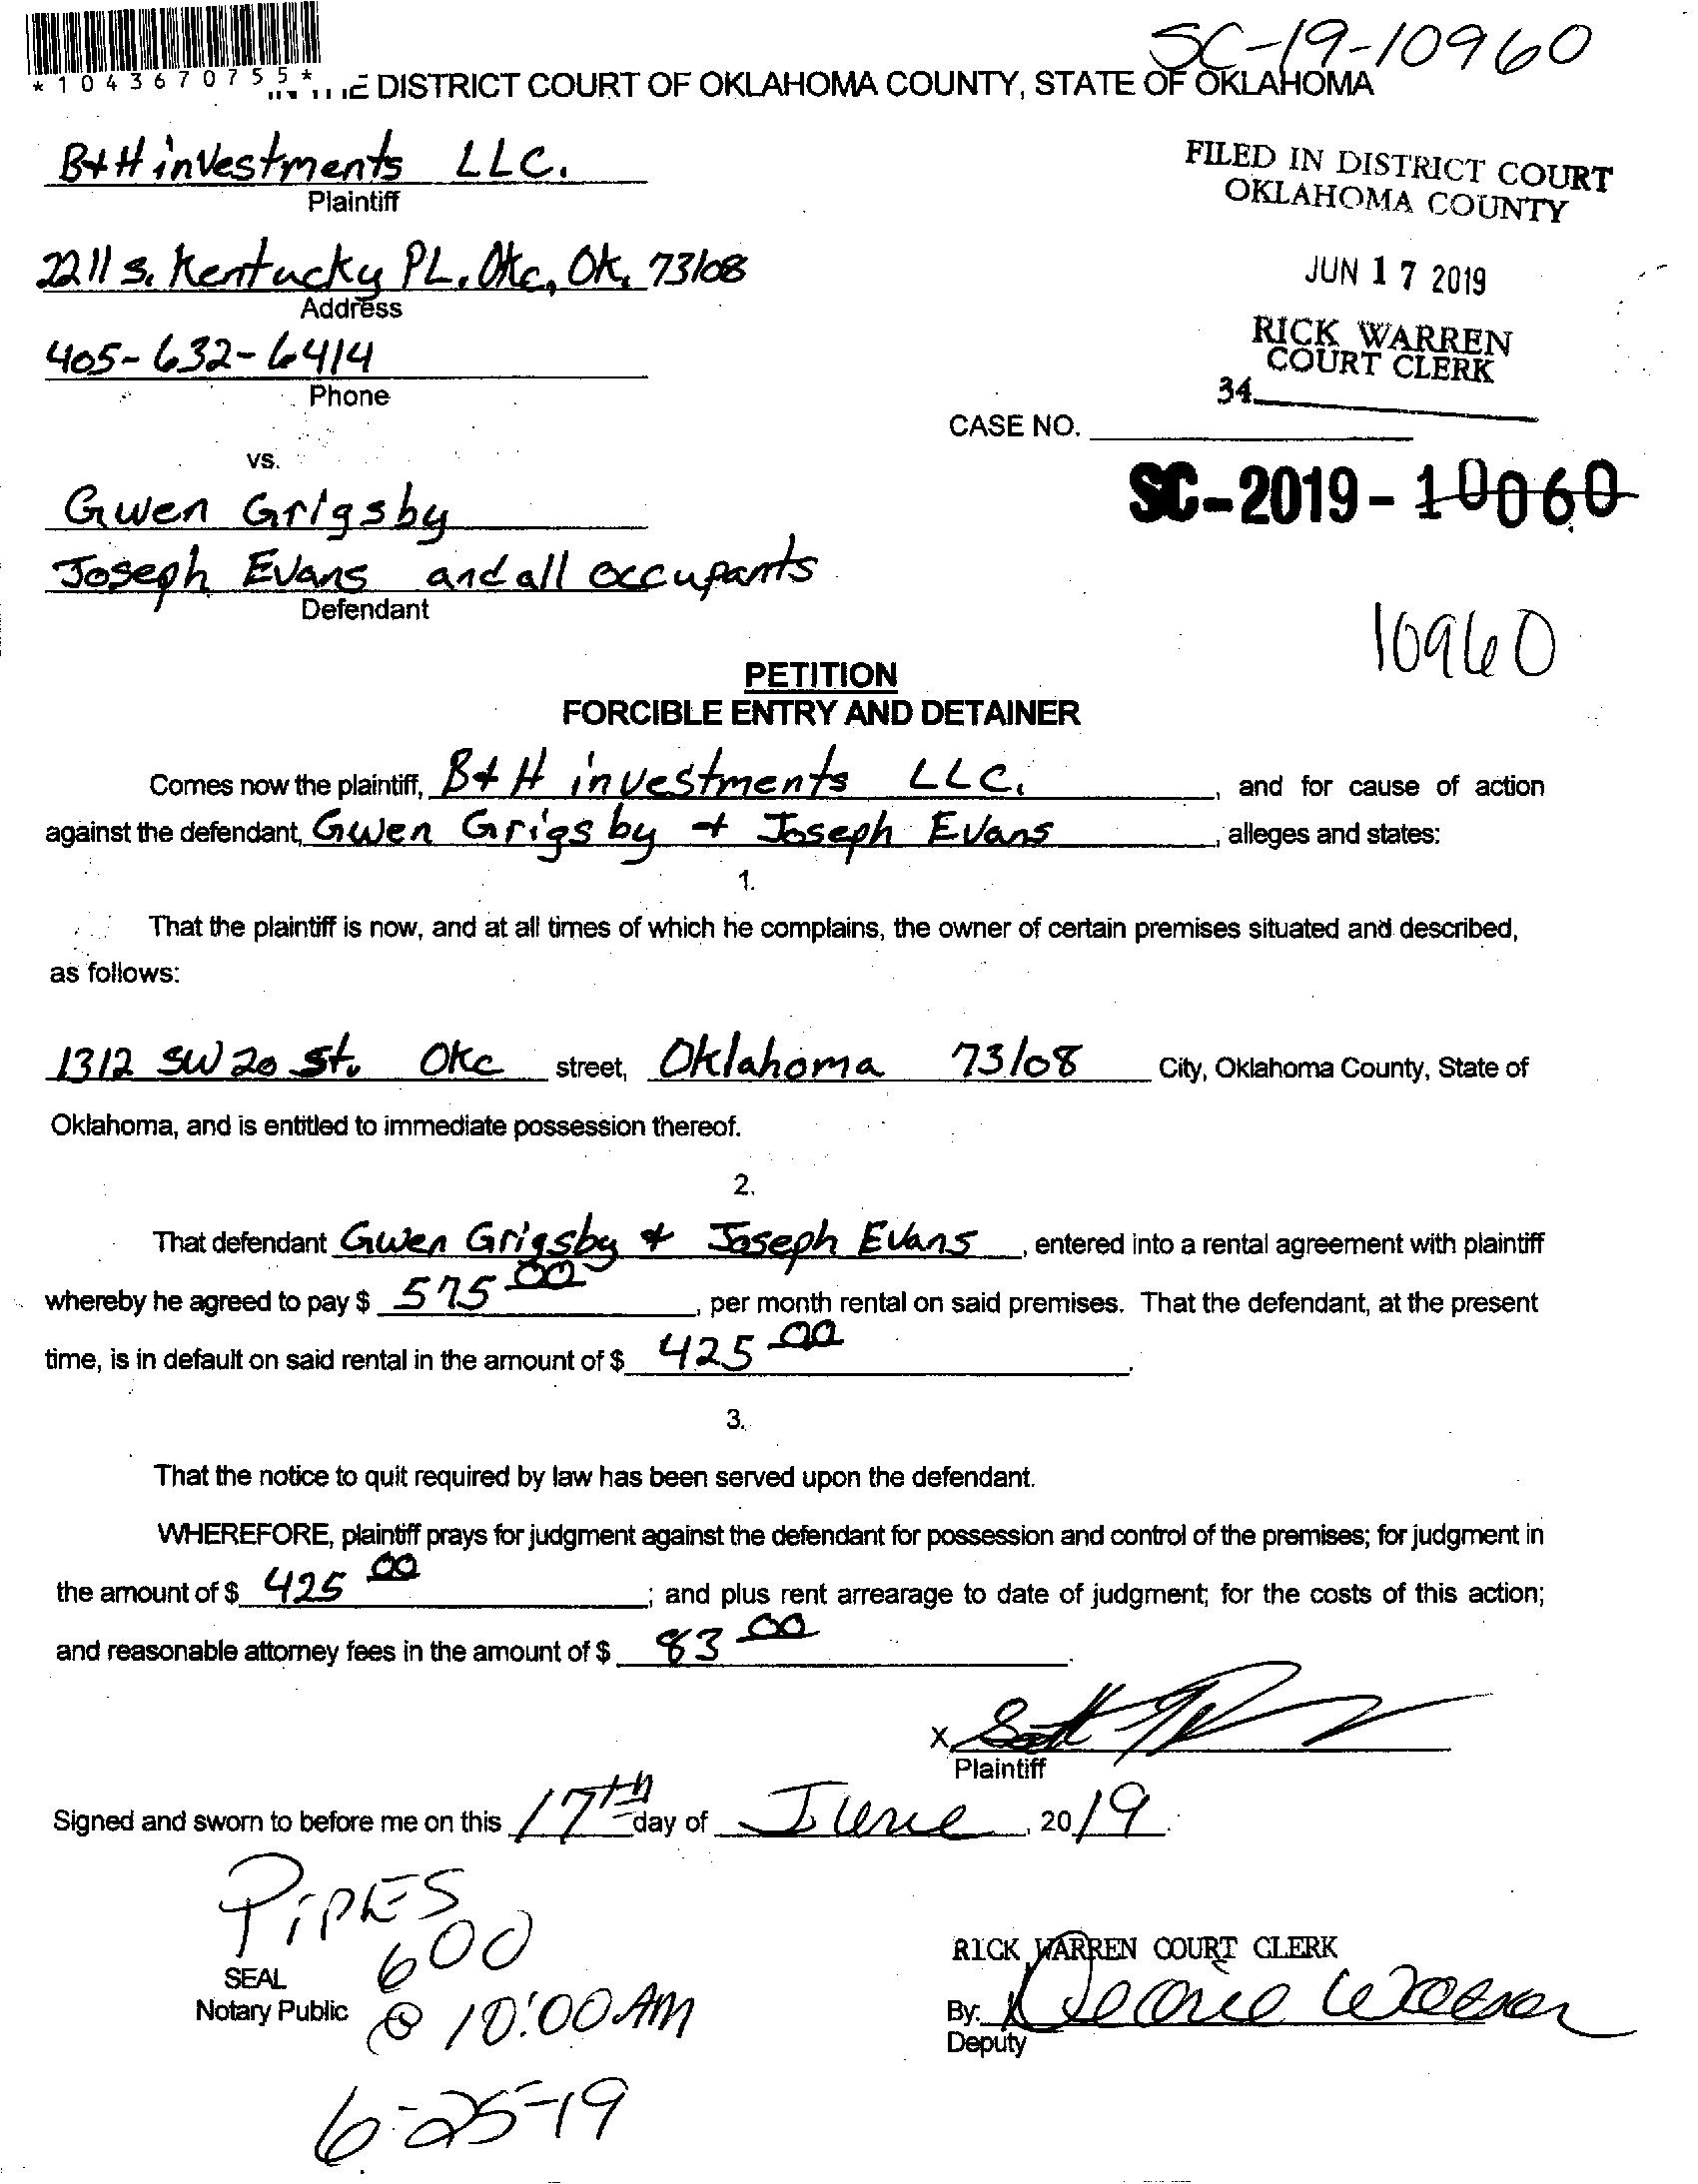 SC-19-10960
*1043670755*
DISTRICT COURT OF OKLAHOMA COUNTY, STATE OF OKLAHOMA
B+H investments LLC.
Plaintiff
FILED IN DISTRICT COURT
OKLAHOMA COUNTY
2211 S. Kentucky PL. Okc, Ok, 73108
Address
JUN 17 2019
405-632-6414
Phone
RICK WARREN
COURT CLERK
34
CASE NO.
vs.
SC-2019-10060
Gwen Grigsby
Joseph Evans and all occupants
Defendant
10960
PETITION
FORCIBLE ENTRY AND DETAINER
Comes now the plaintiff, B+H investments LLC. , and for cause of action
against the defendant, Gwen Grigsby + Joseph Evans , alleges and states:
1.
That the plaintiff is now, and at all times of which he complains, the owner of certain premises situated and described,
as follows:
1312 SW 20 St. Okc street, Oklahoma 73108 City, Oklahoma County, State of
Oklahoma, and is entitled to immediate possession thereof.
2.
That defendant Gwen Grigsby + Joseph Evans , entered into a rental agreement with plaintiff
whereby he agreed to pay $ 575 00 , per month rental on said premises. That the defendant, at the present
time, is in default on said rental in the amount of $ 425 00 .
3.
That the notice to quit required by law has been served upon the defendant.
WHEREFORE, plaintiff prays for judgment against the defendant for possession and control of the premises; for judgment in
the amount of $ 425 00 ; and plus rent arrearage to date of judgment; for the costs of this action;
and reasonable attorney fees in the amount of $ 83 00 .
X
Plaintiff
Signed and sworn to before me on this 17th day of June , 20 19 .
PIPES
600
SEAL
Notary Public
@ 10:00 AM
6-25-19
RICK WARREN COURT CLERK
By:
Deputy